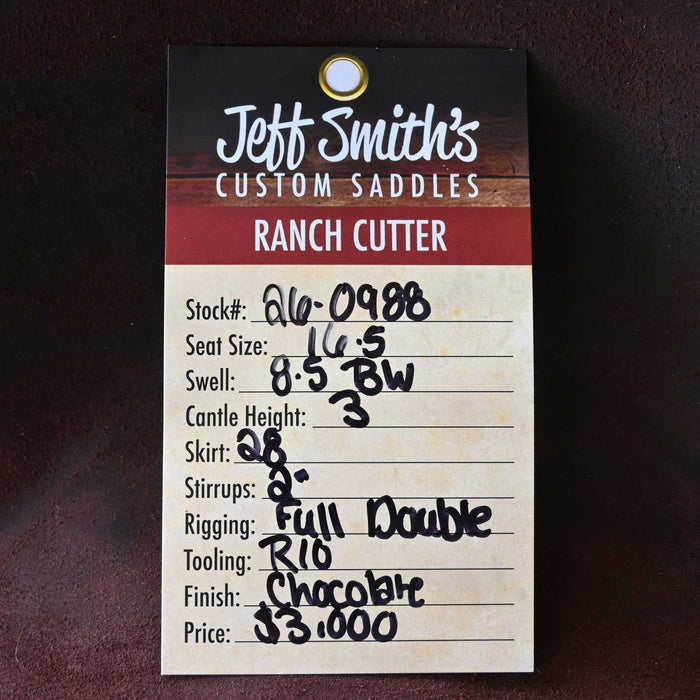 Jeff Smith's
CUSTOM SADDLES
RANCH CUTTER
Stock#: 26-0988
Seat Size: 16.5
Swell: 8.5 BW
Cantle Height: 3
Skirt: 28
Stirrups: 2"
Rigging: Full Double
Tooling: R10
Finish: Chocolate
Price: $3,000